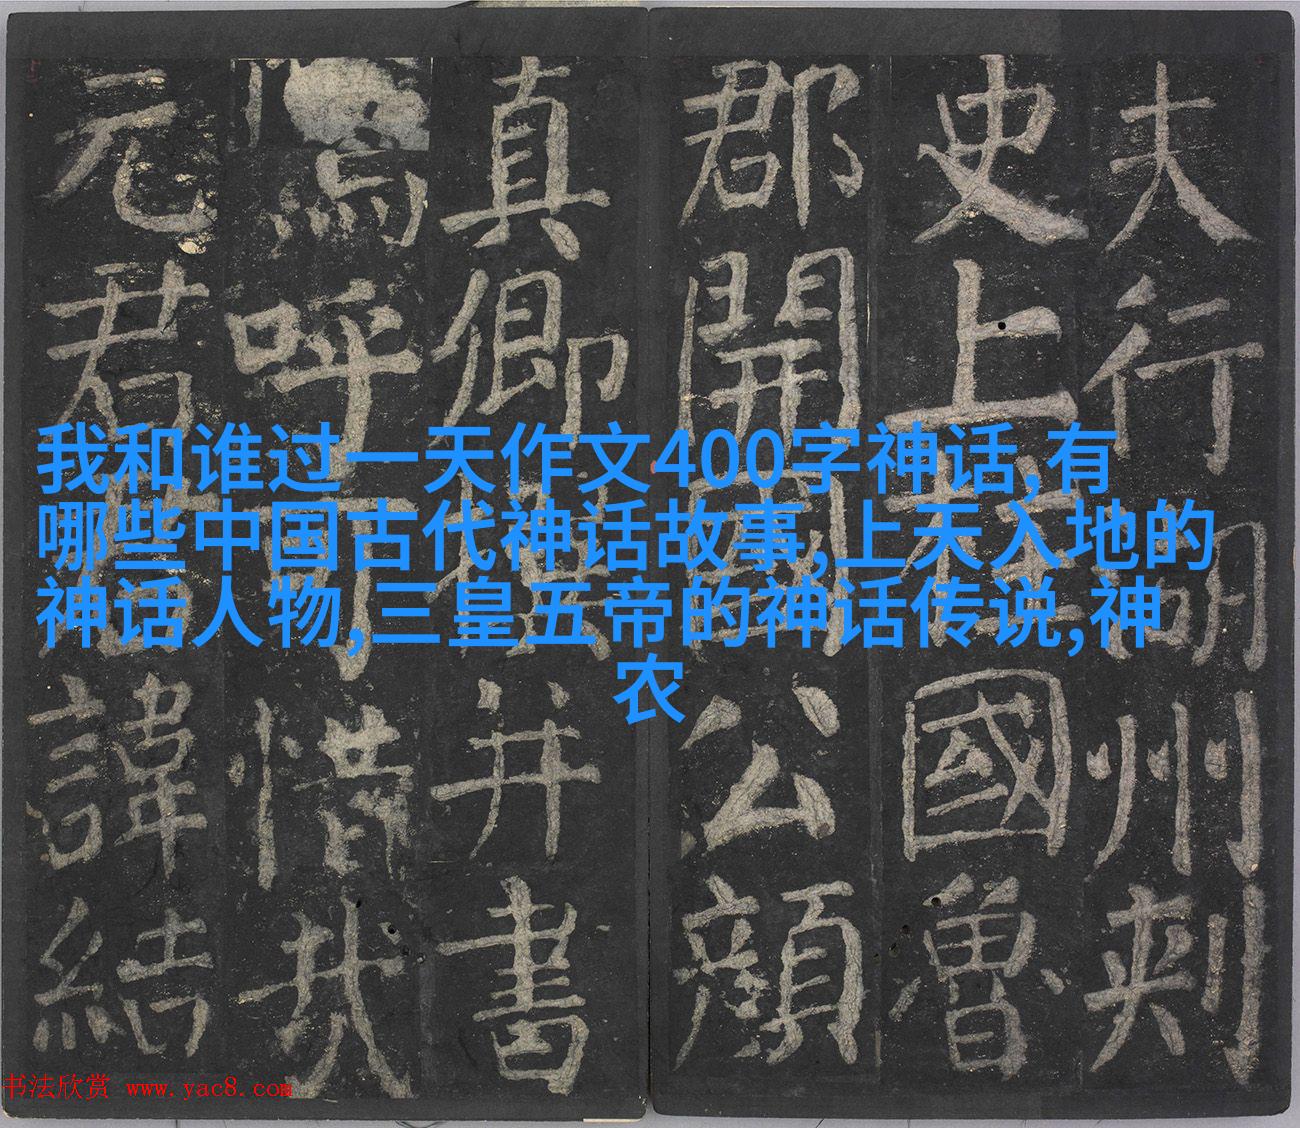 我和谁过一天作文400字神话,有
哪些中国古代神话故事,上天入地的
神话人物,三皇五帝的神话传说,神
农
夫行湖州刺
史上柱國魯
郡開國公顏
真卿撰并書
呼可惜哉
元君諱結
书法欣赏 www.yac8.com